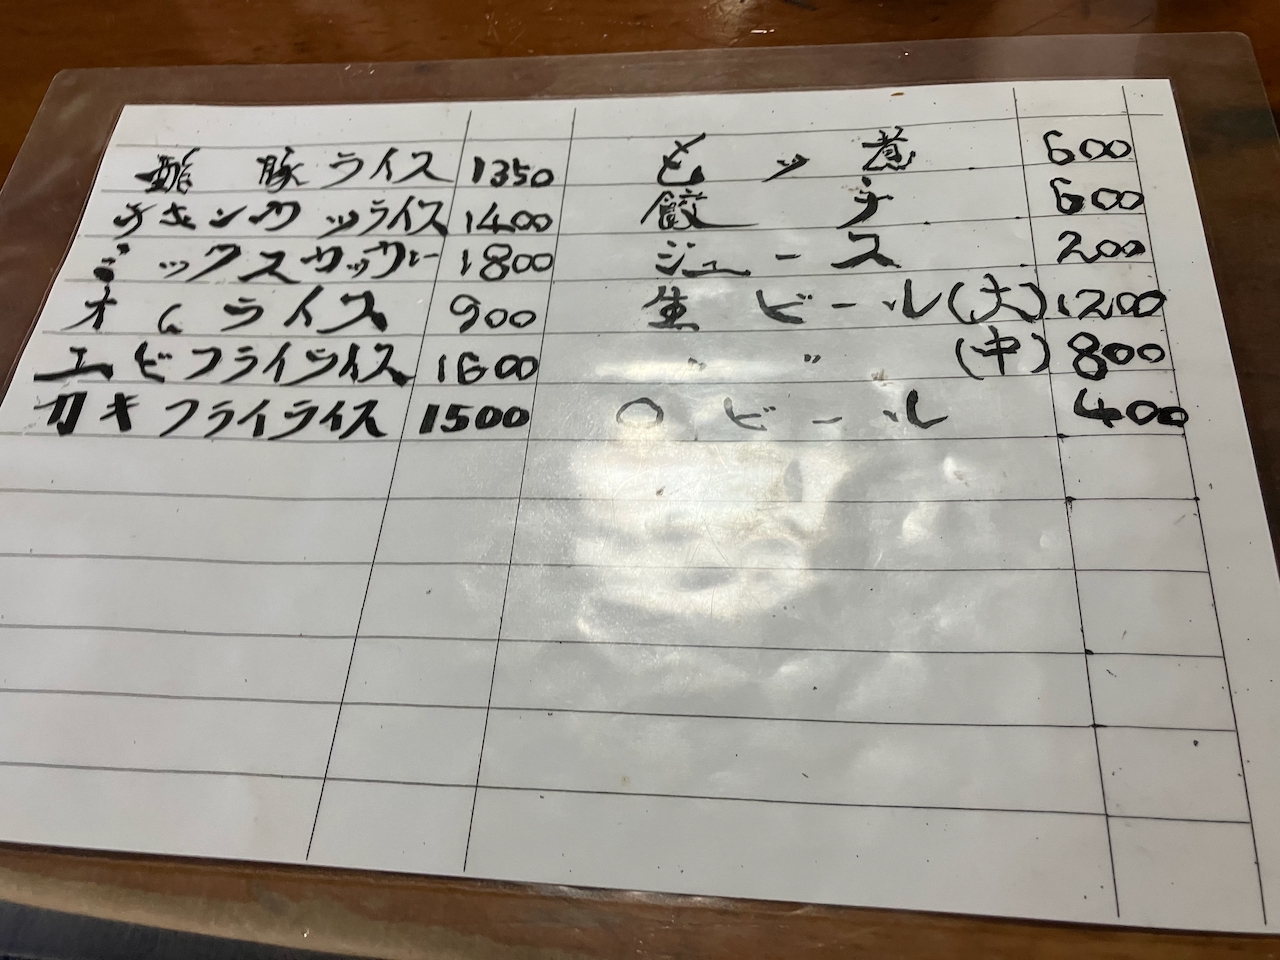 酢豚ライス 1350
チキンカツライス 1400
ミックスカツカレー 1800
オムライス 900
エビフライライス 1600
カキフライライス 1500
モツ煮 600
餃子 600
ジュース 200
生ビール(大) 1200
〃 〃 (中) 800
〇ビール 400